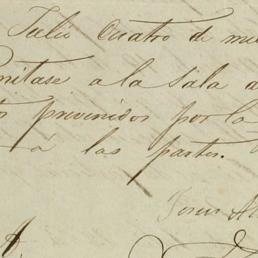 Julio Cuatro de mil
mitase a la Sala d
prevenidos por la
a las partes.